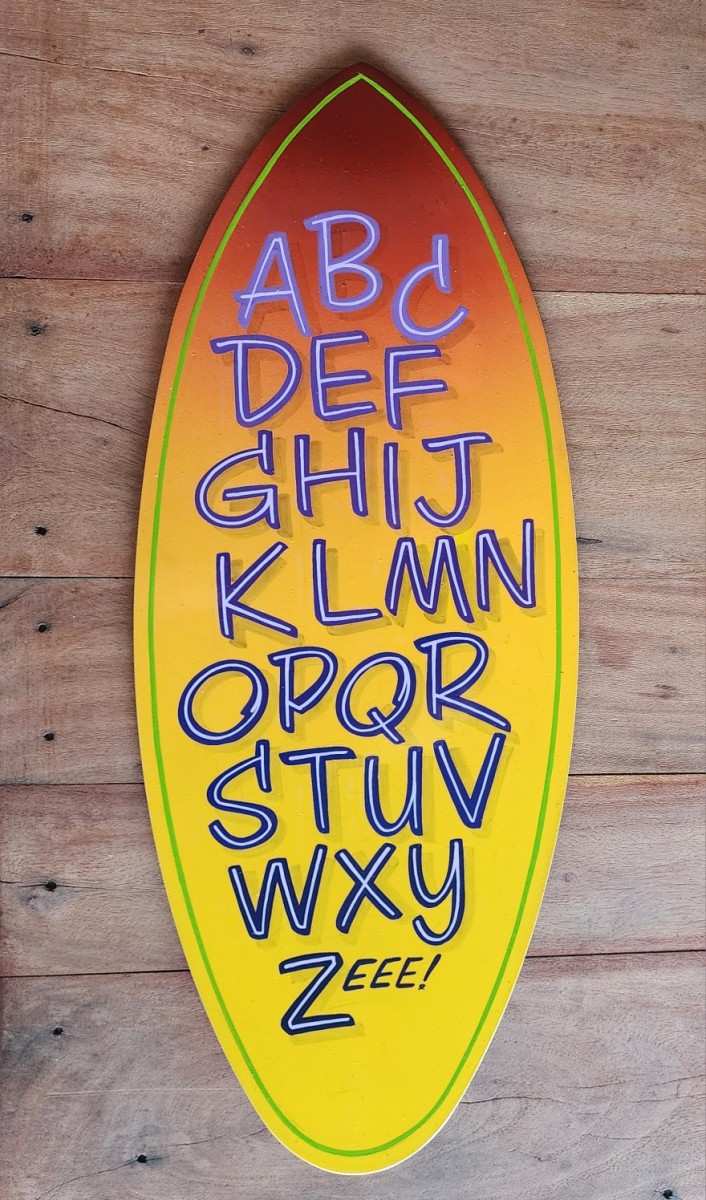 ABC
DEF
GHIJ
KLMN
OPQR
STUV
WXY
ZEEE!